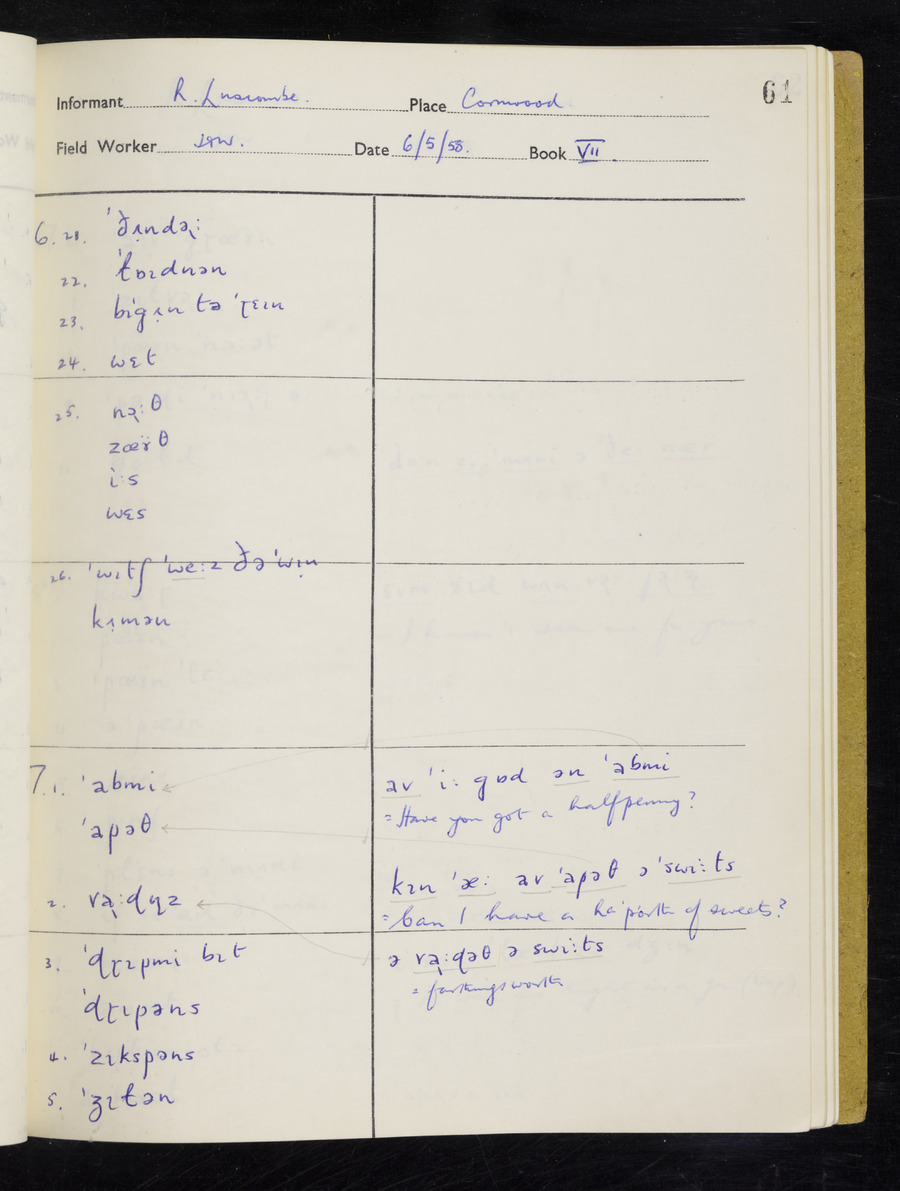 61
Informant R. Luscombe. Place Cornwood
Field Worker Date 6/5/58. Book VII
6. 21. ˈðʌ̣ndəɻː
22. ˈtɒɪdnən
23. bɪˈgɪ̣n tə ˈɽɛɪn
24. wɛt
25. nəɻːθ
zœr̈θ
iːs
wɛs
26. ˈwɪtʃ ˈweːz ðə ˈwɪ̣n
kʌ̣mən
7. 1. ˈabmi
ˈapəθ
2. vaɻːdɪ̣z
3. ˈdɽɪpmi bɪt
ˈdɽɪpəns
4. ˈzɪkspəns
5. ˈʒɪtən
av ˈiː gɒd ən ˈabmi
= Have you got a halfpenny?
kɪn ˈæː av ˈapəθ ə ˈswiːts
= Can I have a ha'p'orth of sweets?
ə vaɻːdəθ ə swiːts
= farthingsworth